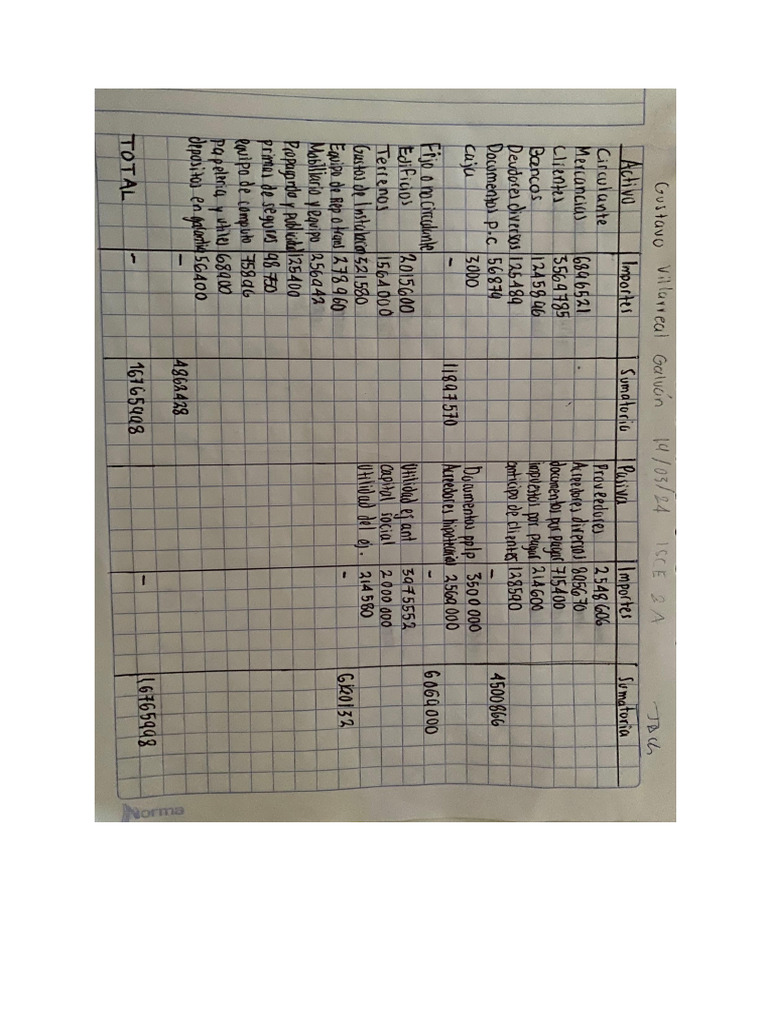 Gustavo Villarreal Galván 14/03/24 ISCE 2 A
Activo Importes Sumatoria Pasivo Importes Sumatoria
Circulante Proveedores 2548606
Mercancias 6896521 Acreedores diversos 805670
Clientes 3569785 documentos por pagar 715400
Bancos 1245896 impuestos por pagar 214600
Deudores diversos 125494 anticipo de clientes 128590
Documentos p.c 56874 - 4500866
caja 3000 Documentos pp lp 3500000
- 11897570 Acreedores hipotecarios 2569000
Fijo o no circulante - 6069000
Edificios 2015600 Utilidad ej ant 3975552
Terrenos 1564000 capital social 2000000
Gastos de instalacion 321580 Utilidad del ej. 214580
Equipo de Rep o trans 278960 - 6190132
Mobiliario y equipo 256942
Propaganda y publicidad 125400
primas de seguros 98750
equipo de computo 75896
papeleria y utiles 68900
depositos en garantia 56400
- 4868428
TOTAL - 16765998 - 16765998
Norma